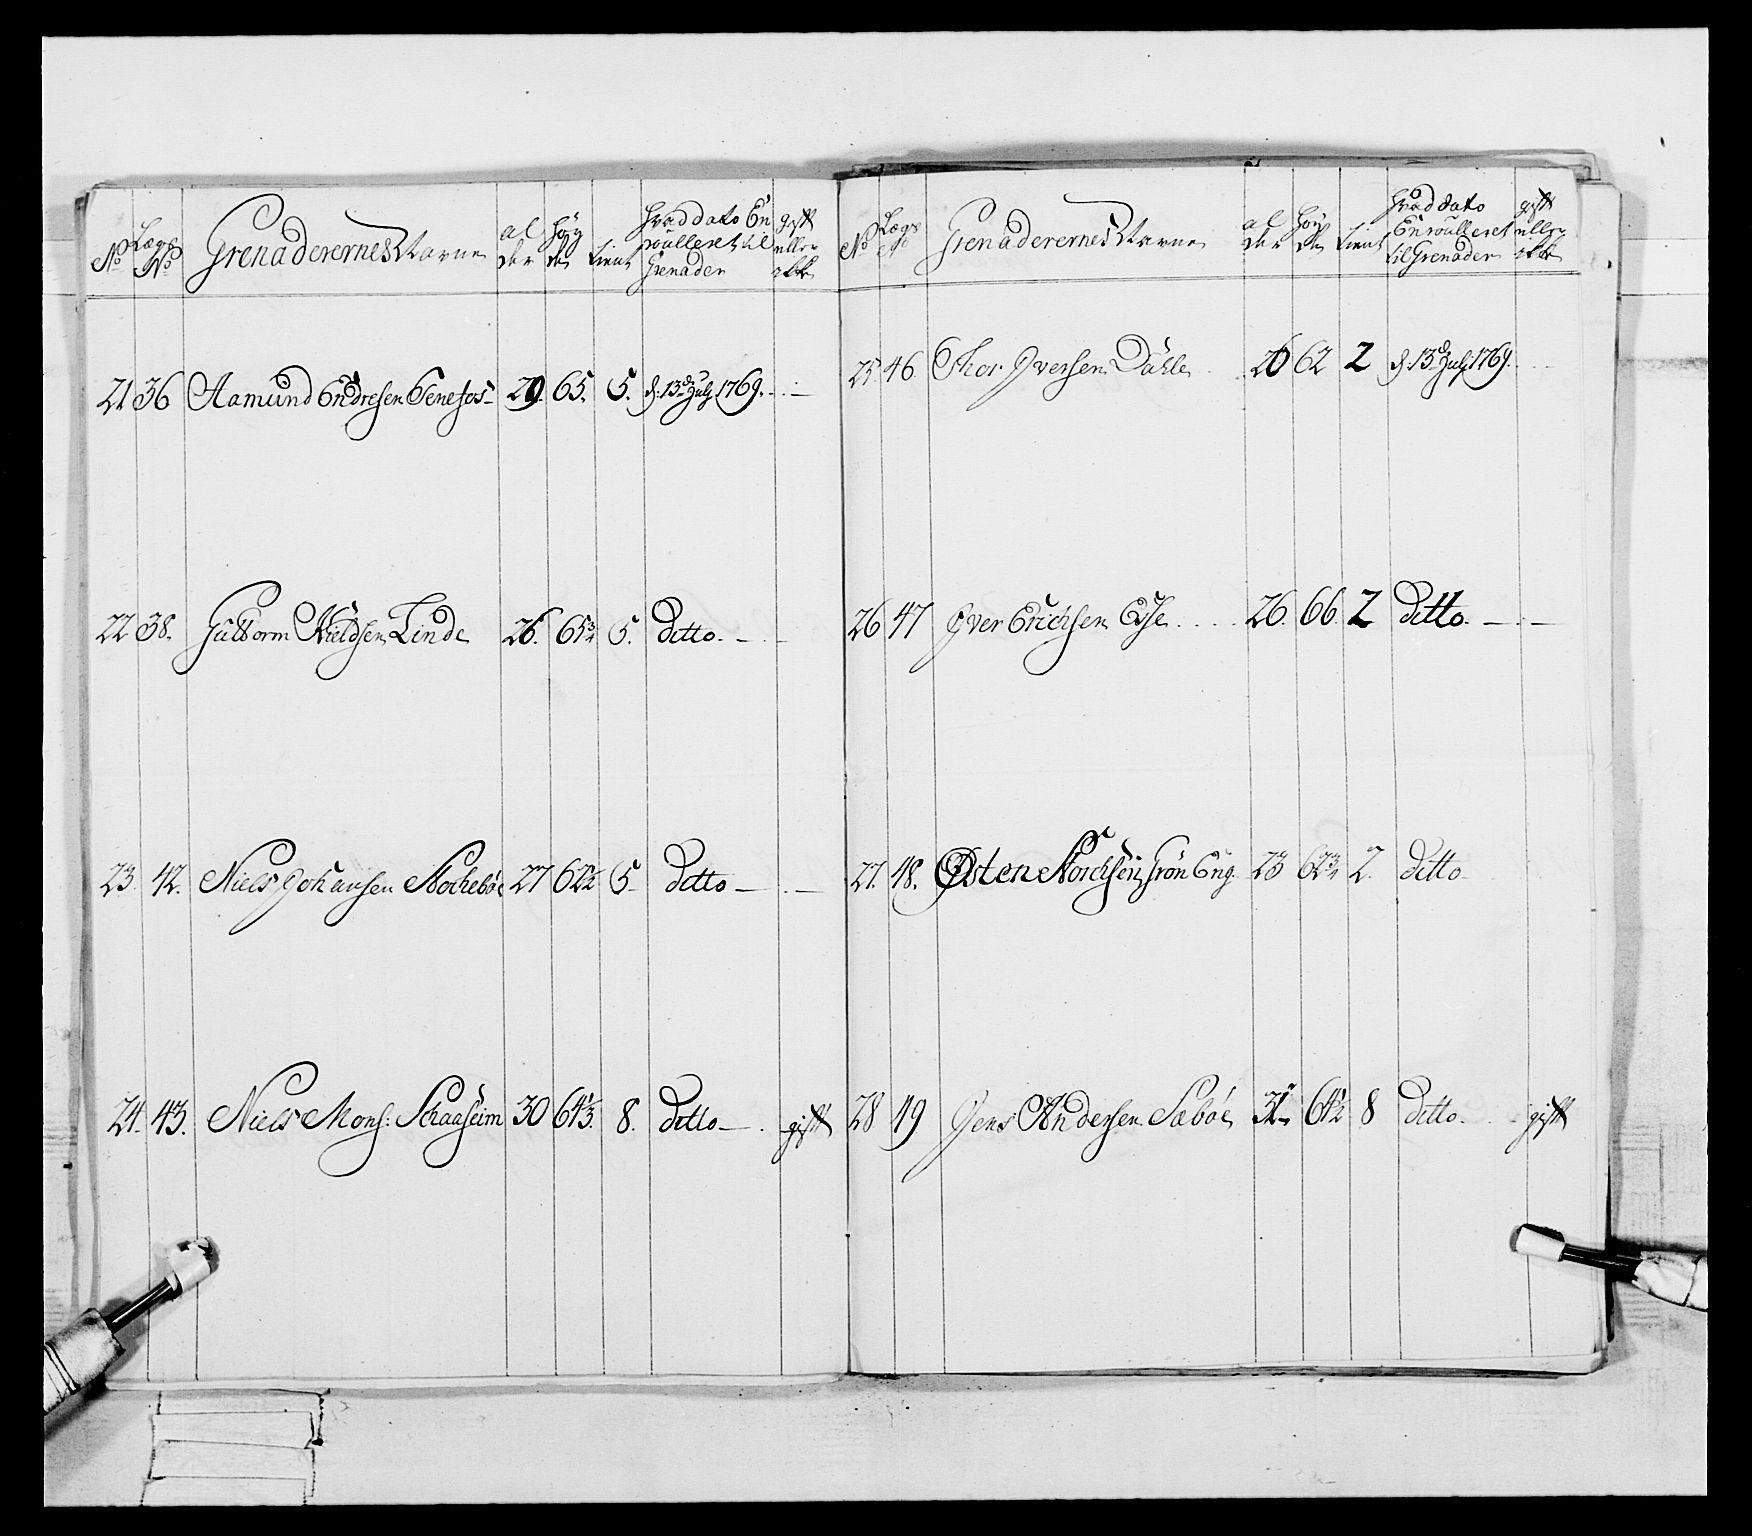 No Lægs No Grenaderernes Navne al der Høy de tient Hvad dato En roulleret til Grenader gift eller ikke
21 36 Aamund Endresen Tenefos 29. 65. 5. d: 13de Julj 1769.
22 38. Guttorm Nielsen Linde 26. 65¾ 5. Ditto.
23. 42. Niels Johansen Nochebøe 27 62½ 5. Ditto
24. 43. Niels Mons: Schaaheim 30 64⅓. 8. Ditto gift
No Lægs No Grenaderernes Navne al der Høy de tient Hvad dato Enroulleret til Grenader gift eller ikke
25 46 Thor Iversen Dahle 26 62 2 d: 13de Julj 1769.
26 47 Iver Erichsen Eye 26. 66. 2 Ditto.
27. 48. Østen Norchsen Grøn Eng 23 62¾ 2. Ditto
28 49 Jens Andersen Sæbøe 31 64½ 8 Ditto. gift